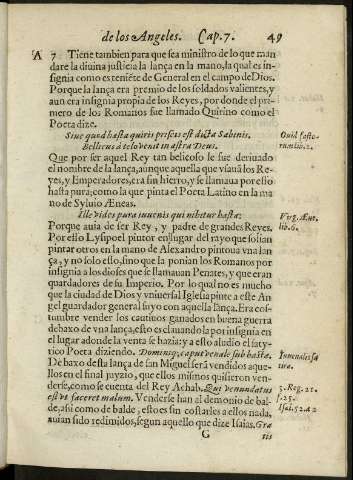 de los Angeles. Cap. 7. 49
A 7 Tiene tambien para que sea ministro de lo que man
dare la diuina justicia la lança en la mano, la qual es in-
signia como es teniẽte de General en el campo de Dios.
Porque la lança era premio de los soldados valientes, y
aun era insignia propia de los Reyes, por donde el pri-
mero de los Romanos fue llamado Quirino como el
Poeta dize.
Siue quod hasta quiris priscis est dicta Sabinis.
Ouid fasto-
Bellicus à telo venit in astra Deus.
rum lib. 2.
Que por ser aquel Rey tan belicoso le fue deriuado
el nombre de la lança, aunque aquella que vsauã los Re-
yes, y Emperadores, era sin hierro, y se llamaua por esso
hasta pura; como la que pinta el Poeta Latino en la ma-
no de Syluio Æneas.
Ille vides pura iuuenis qui nititur hasta:
Virg. Æne.
lib. 6.
Porque auia de ser Rey, y padre de grandes Reyes.
Por esso Lysipo el pintor en lugar del rayo que solian
pintar otros en la mano de Alexandro pintoua vna lan
ça, y no solo esso, sino que la ponian los Romanos por
insignia a los dioses que se llamauan Penates, y que eran
guardadores de su Imperio. Por lo qual no es mucho
que la ciudad de Dios y vniuersal Iglesia pinte a este An
gel guardador general suyo con aquella lança. Era cos-
tumbre vender los cautiuos ganados en buena guerra
debaxo de vna lança, esto es eleuando la por insignia en
el lugar adonde la venta se hazia: y a esto aludio el saty-
rico Poeta diziendo. Domino, caput venale sub hasta.
Iuuenal satyra.
De baxo desta lança de san Miguel serà vendidos aque-
llos en el final juyzio, que ellos mismos quisieron ven-
derse, como se cuenta del Rey Achab. Qui venundatus
3. Reg. 21.
est vt faceret malum. Venderse han al demonio de bal-
Isai. 52.
de, assi como de balde, esto es sin costarles a ellos nada,
auian sido redimidos, segun aquello que dize Isaias. Gra
G
tis